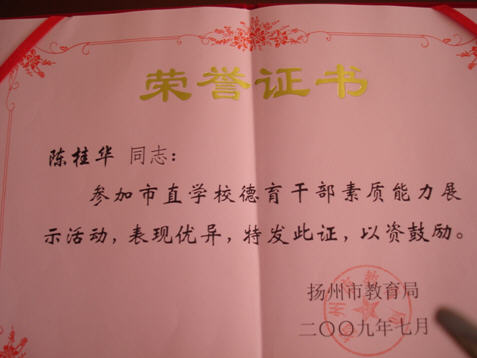 荣誉证书
陈桂华 同志：
参加市直学校德育干部素质能力展
示活动，表现优异，特发此证，以资鼓励。
扬州市教育局
二〇〇九年七月